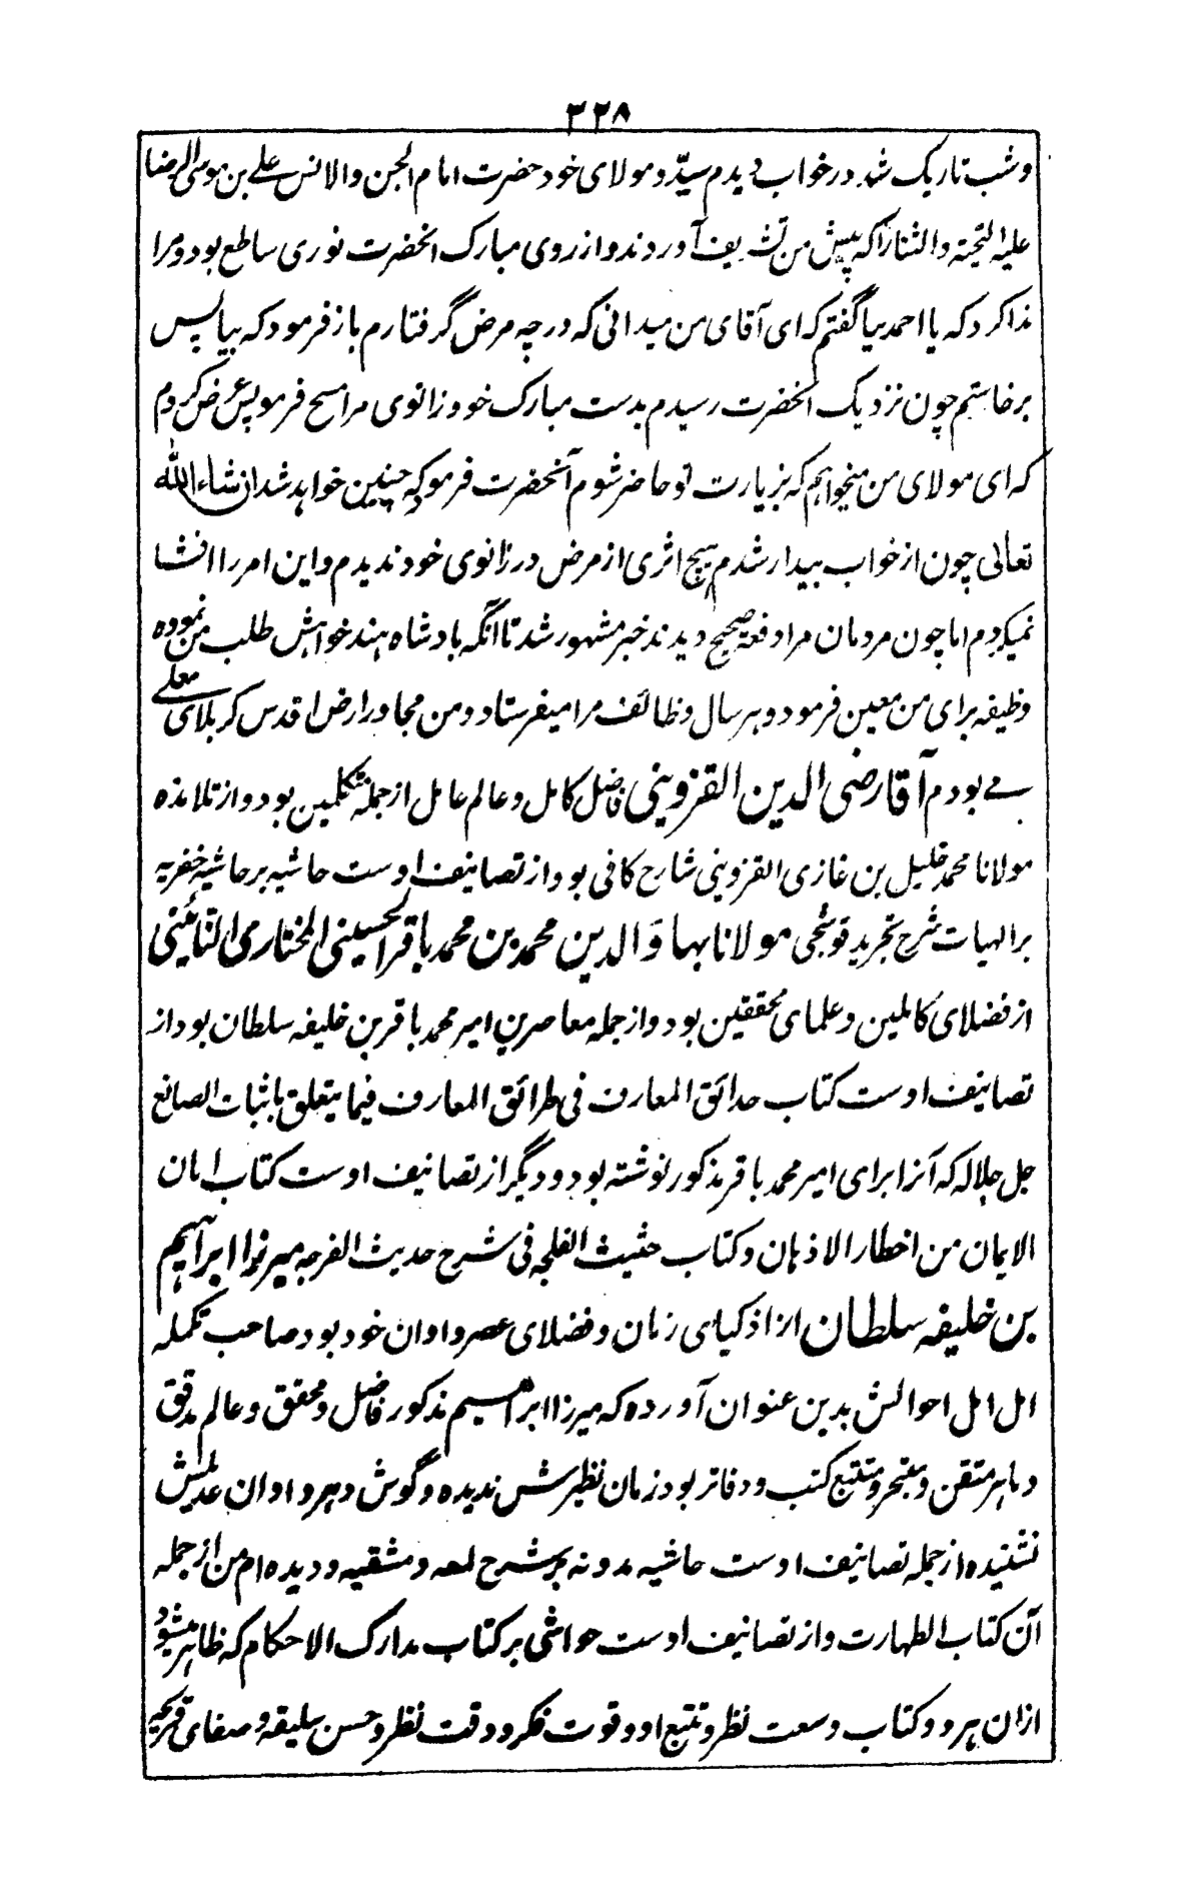 ۳۲۸
وشب تاریک شد در خواب دیدم سیّد و مولای خود حضرت امام الجن والانس علی بن موسی الرضا
علیه التحیته والثنا را که پیش من تشریف آوردند و از روی مبارک آنحضرت نوری ساطع بود و مرا
ندا کرد که یا احمد بیا گفتم که ای آقای من میدانی که در چه مرض گرفتارم باز فرمود که بیا پس
برخاستم چون نزدیک آنحضرت رسیدم بدست مبارک خود زانوی مرا مسح فرمود پس عرض کردم
که ای مولای من میخواهم که بزیارت تو حاضر شوم آنحضرت فرمود که چنین خواهد شد انشاء الله
تعالی چون از خواب بیدار شدم هیچ اثری از مرض در زانوی خود ندیدم و این امر را افشا
نمیکردم اما چون مردمان مرا دفعة صحیح دیدند خبر مشهور شد تا آنگه بادشاه هند خواهش طلب من نموده
وظیفه برای من معین فرمود و هر سال وظائف مرا میفرستاد و من مجاور ارض اقدس کربلای معلے
مے بودم آقا رضی الدین القزوینی فاضل کامل و عالم عامل از جمله متکلمین بود و از تلامذه
مولانا محمد خلیل بن غازی القزوینی شارح کافی بود از تصانیف اوست حاشیه بر حاشیه خفریه
بر الهیات شرح تجرید قوشجی مولانا بهاؤ الدین محمد بن محمد باقر الحسینی المختاری النائینی
از فضلای کاملین و علمای محققین بود و از جمله معاصرین امیر محمد باقر بن خلیفه سلطان بود از
تصانیف اوست کتاب حدائق المعارف فی طرائق المعارف فیما یتعلق باثبات الصانع
جل جلاله که آنرا برای امیر محمد باقر مذکور نوشته بود و دیگر از تصانیف اوست کتاب امان
الایمان من اخطار الاذهان و کتاب حثیث الفلجه فی شرح حدیث الفرجه میرزا ابراهیم
بن خلیفه سلطان از اذکیای زمان و فضلای عصر و اوان خود بود صاحب تکمله
امل امل احوالش بدین عنوان آورده که میرزا ابراهیم مذکور فاضل و محقق و عالم مدقق
و ماهر متقن و متبحر و متتبع کتب و دفاتر بود زمان نظیرش ندیده و گوش دهر و اوان عدیلش
نشنیده از جمله تصانیف اوست حاشیه مدونه بر شرح لمعه دمشقیه و دیده ام من از جمله
آن کتاب الطهارت و از تصانیف اوست حواشی بر کتاب مدارک الاحکام که ظاهر میشود
ازان هر دو کتاب وسعت نظر و تتبع او و قوت فکر و دقت نظر و حسن سلیقه و صفای قریحه